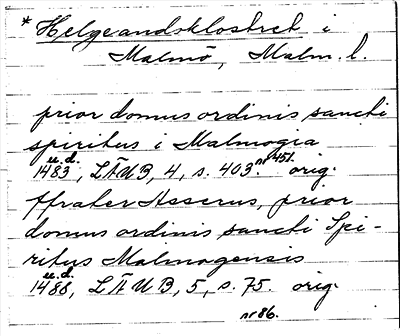 * Helgeandsklostret i
Malmö, Malm. l.
prior domus ordinis sancti
spiritus i Malmogia
u.d. nr 451.
1483, LÄUB, 4, s. 403. orig.
ffrater Asserus, prior
domus ordinis sancti Spi-
ritus Malmogensis
u.d.
1488, LÄUB, 5, s. 75. orig.
nr 86.